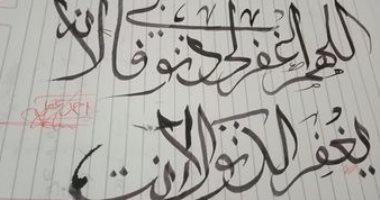 اللهم اغفر لي ذنوبي فانه لا
يغفر الذنوب الا انت